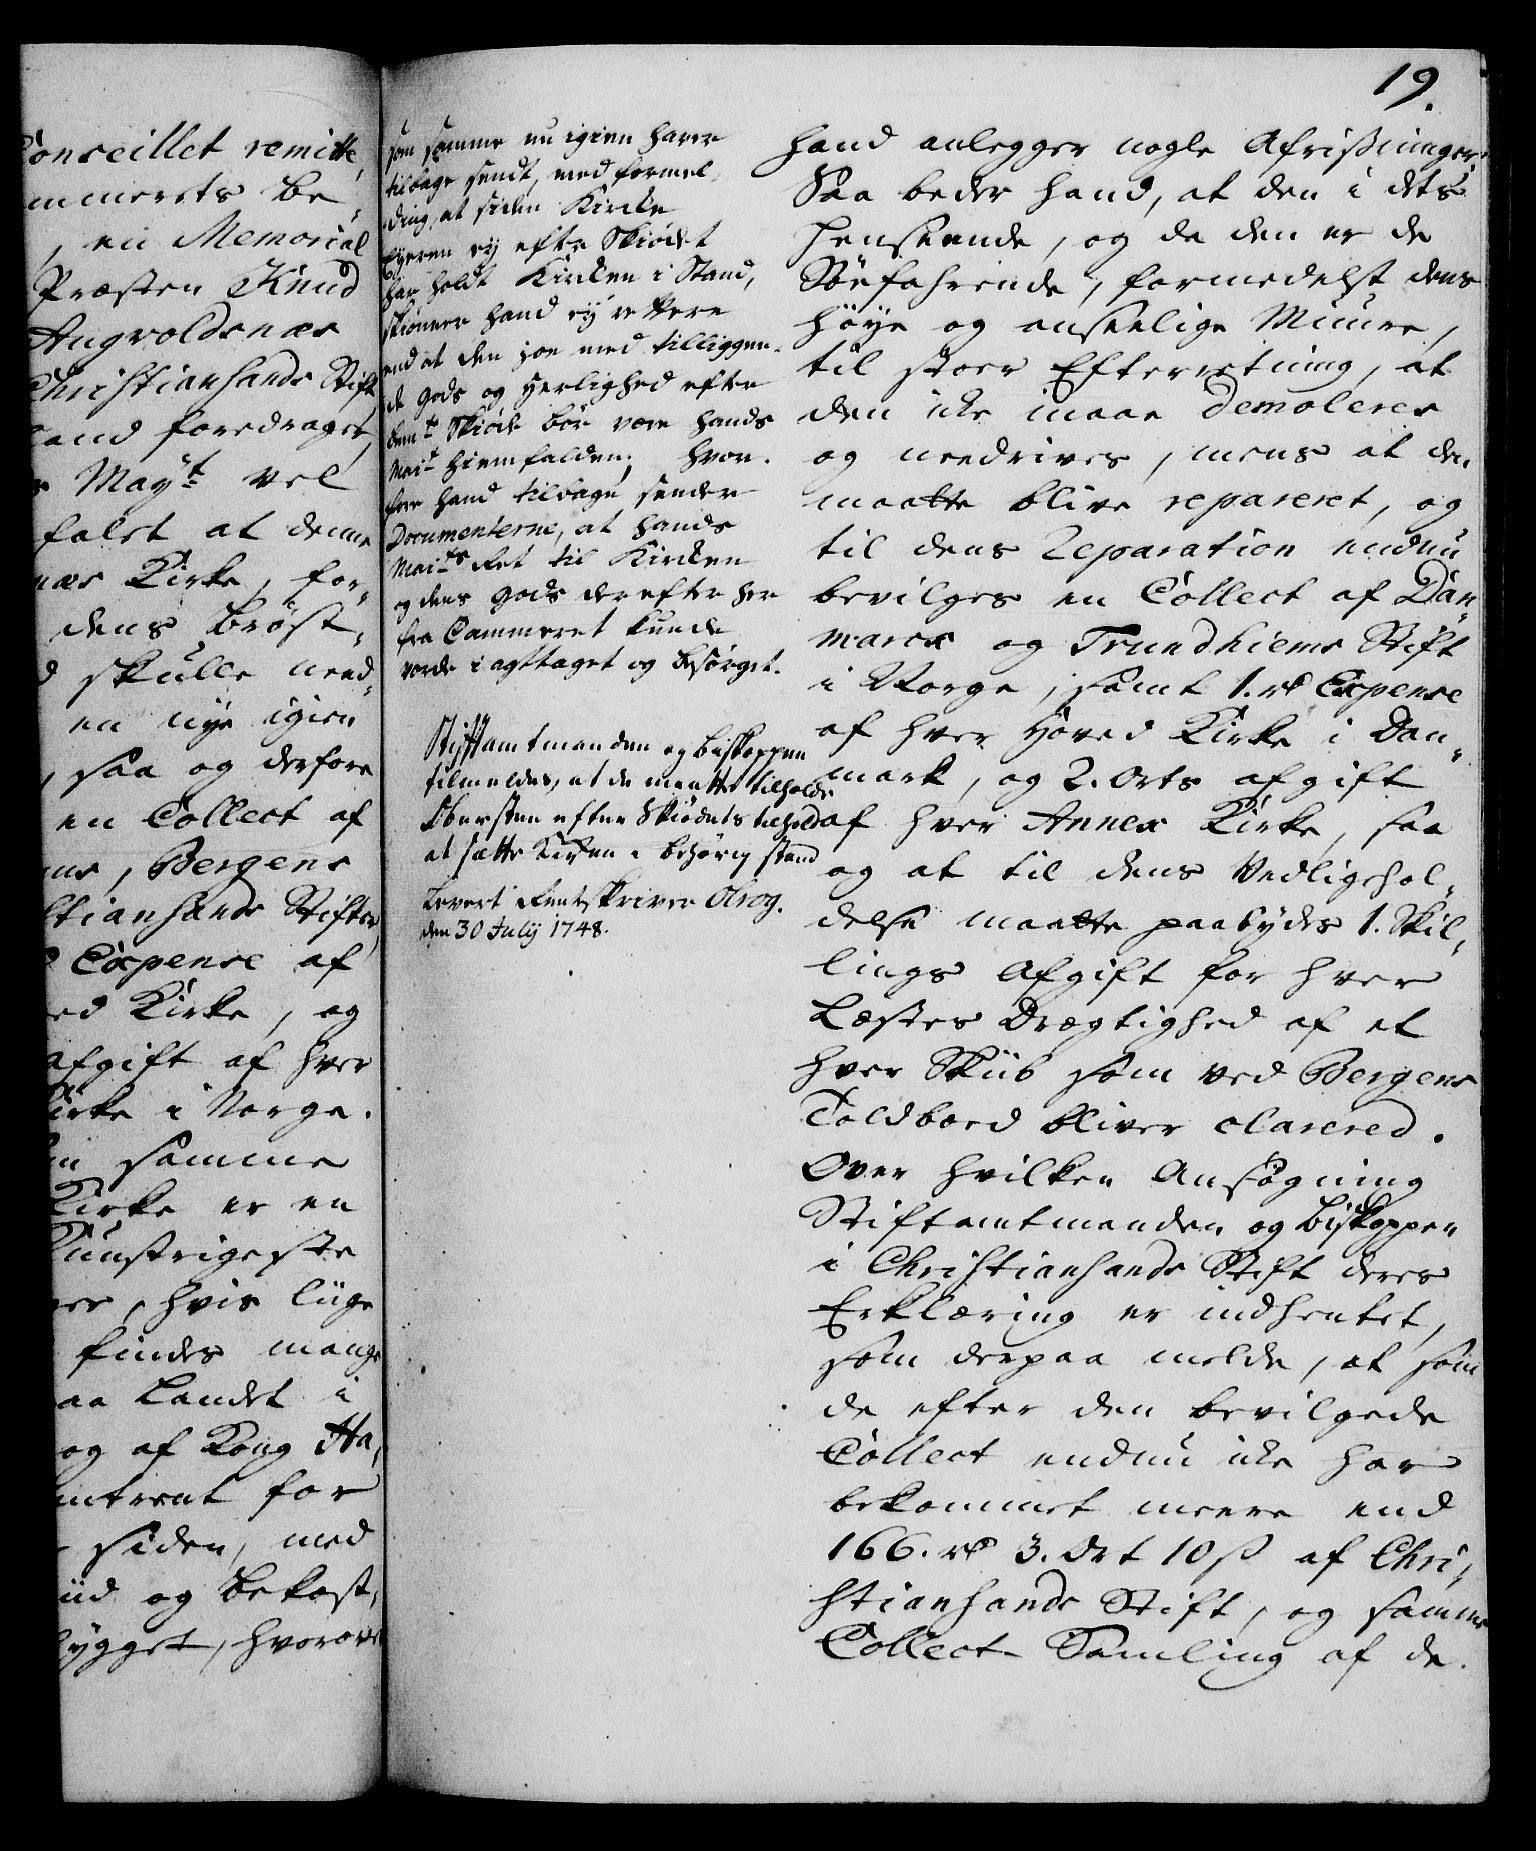 19.
Conseillet remitte,
mmerets be,
, en Memorial
Præsten Knud
Augvoldsnæs
Christiansands Stift
land foredraget,
s Mayt. vel
falst at denne
næs Kirke, for,
dens Bröst,
d skulle need,
en nye igien
, saa og derfore
en Collect af
ms, Bergens
stiansands Stifter
Expense af
ed Kirke, og
afgift af hver
Kirke i Norge.
samme
Kirke er en
Kunstrigeste
er, hvis liige
findes mange
aa Landet i
og af Kong Ha,
ntrent for
siden, med
iid og Bekost,
bygget, hvorover
som samme nu igien haver
tilbage sendt, med formel,
ding, at siden Kircke
Eyeren ey efter Skiödet
har holdt Kircken i Stand,
skiönner hand ey rettere
end at den jo med tilliggen,
de Gods og Herlighed efter
bemte. Skiöde bör være Hands
Mait. hiemfalden; hvor,
fore hand tilbage sender
Documenterne, at Hands
Maits. Ret til Kircken
og dens Gods derefter her
fra Cammeret kunde
vorde i agttaget og besörget.
Stiftamtmanden og Biskoppen
tilmeldes, at de maatte tilholde
Obersten efter Skiödets tilhold
at sætte Kirken i behörig stand
Levert Rentskriver Olrog.
den 30 July 1748.
hand anlegger nogle Afrißninger.
Saa beder hand, at den i dets
Henseende, og da den er de
Söefahrende, formedelst dens
höye og anseelige Muure,
til stoer Efterretning, at
den icke maae Demoleres
og needrives, mens at den
maatte blive repareret, og
til dens Reparation endnu
bevilges en Collect af Dan,
marck og Trundhiems Stift
i Norge, samt 1. rd Expense
af hver Hoved Kirke i Dan,
mark, og 2. Orts afgift
af hver Annex Kirke, saa
og at til dens Vedligehol,
delse maatte paabydes 1. Skil,
lings Afgift for hver
Læstes Drægtighed af et
hver Skiib som ved Bergens
Toldboed bliver clarered.
Over hvilken Ansögning
Stiftamtmanden og Biskoppen
i Christiansands Stift deres
Erklæring er indhentet,
som derpaa melde, at som
de efter den bevilgede
Collect endnu icke har
bekommet meere end
166. rd 3. Ort 10 ß af Chri,
stiansands Stift, og samme
Collect Samling af de